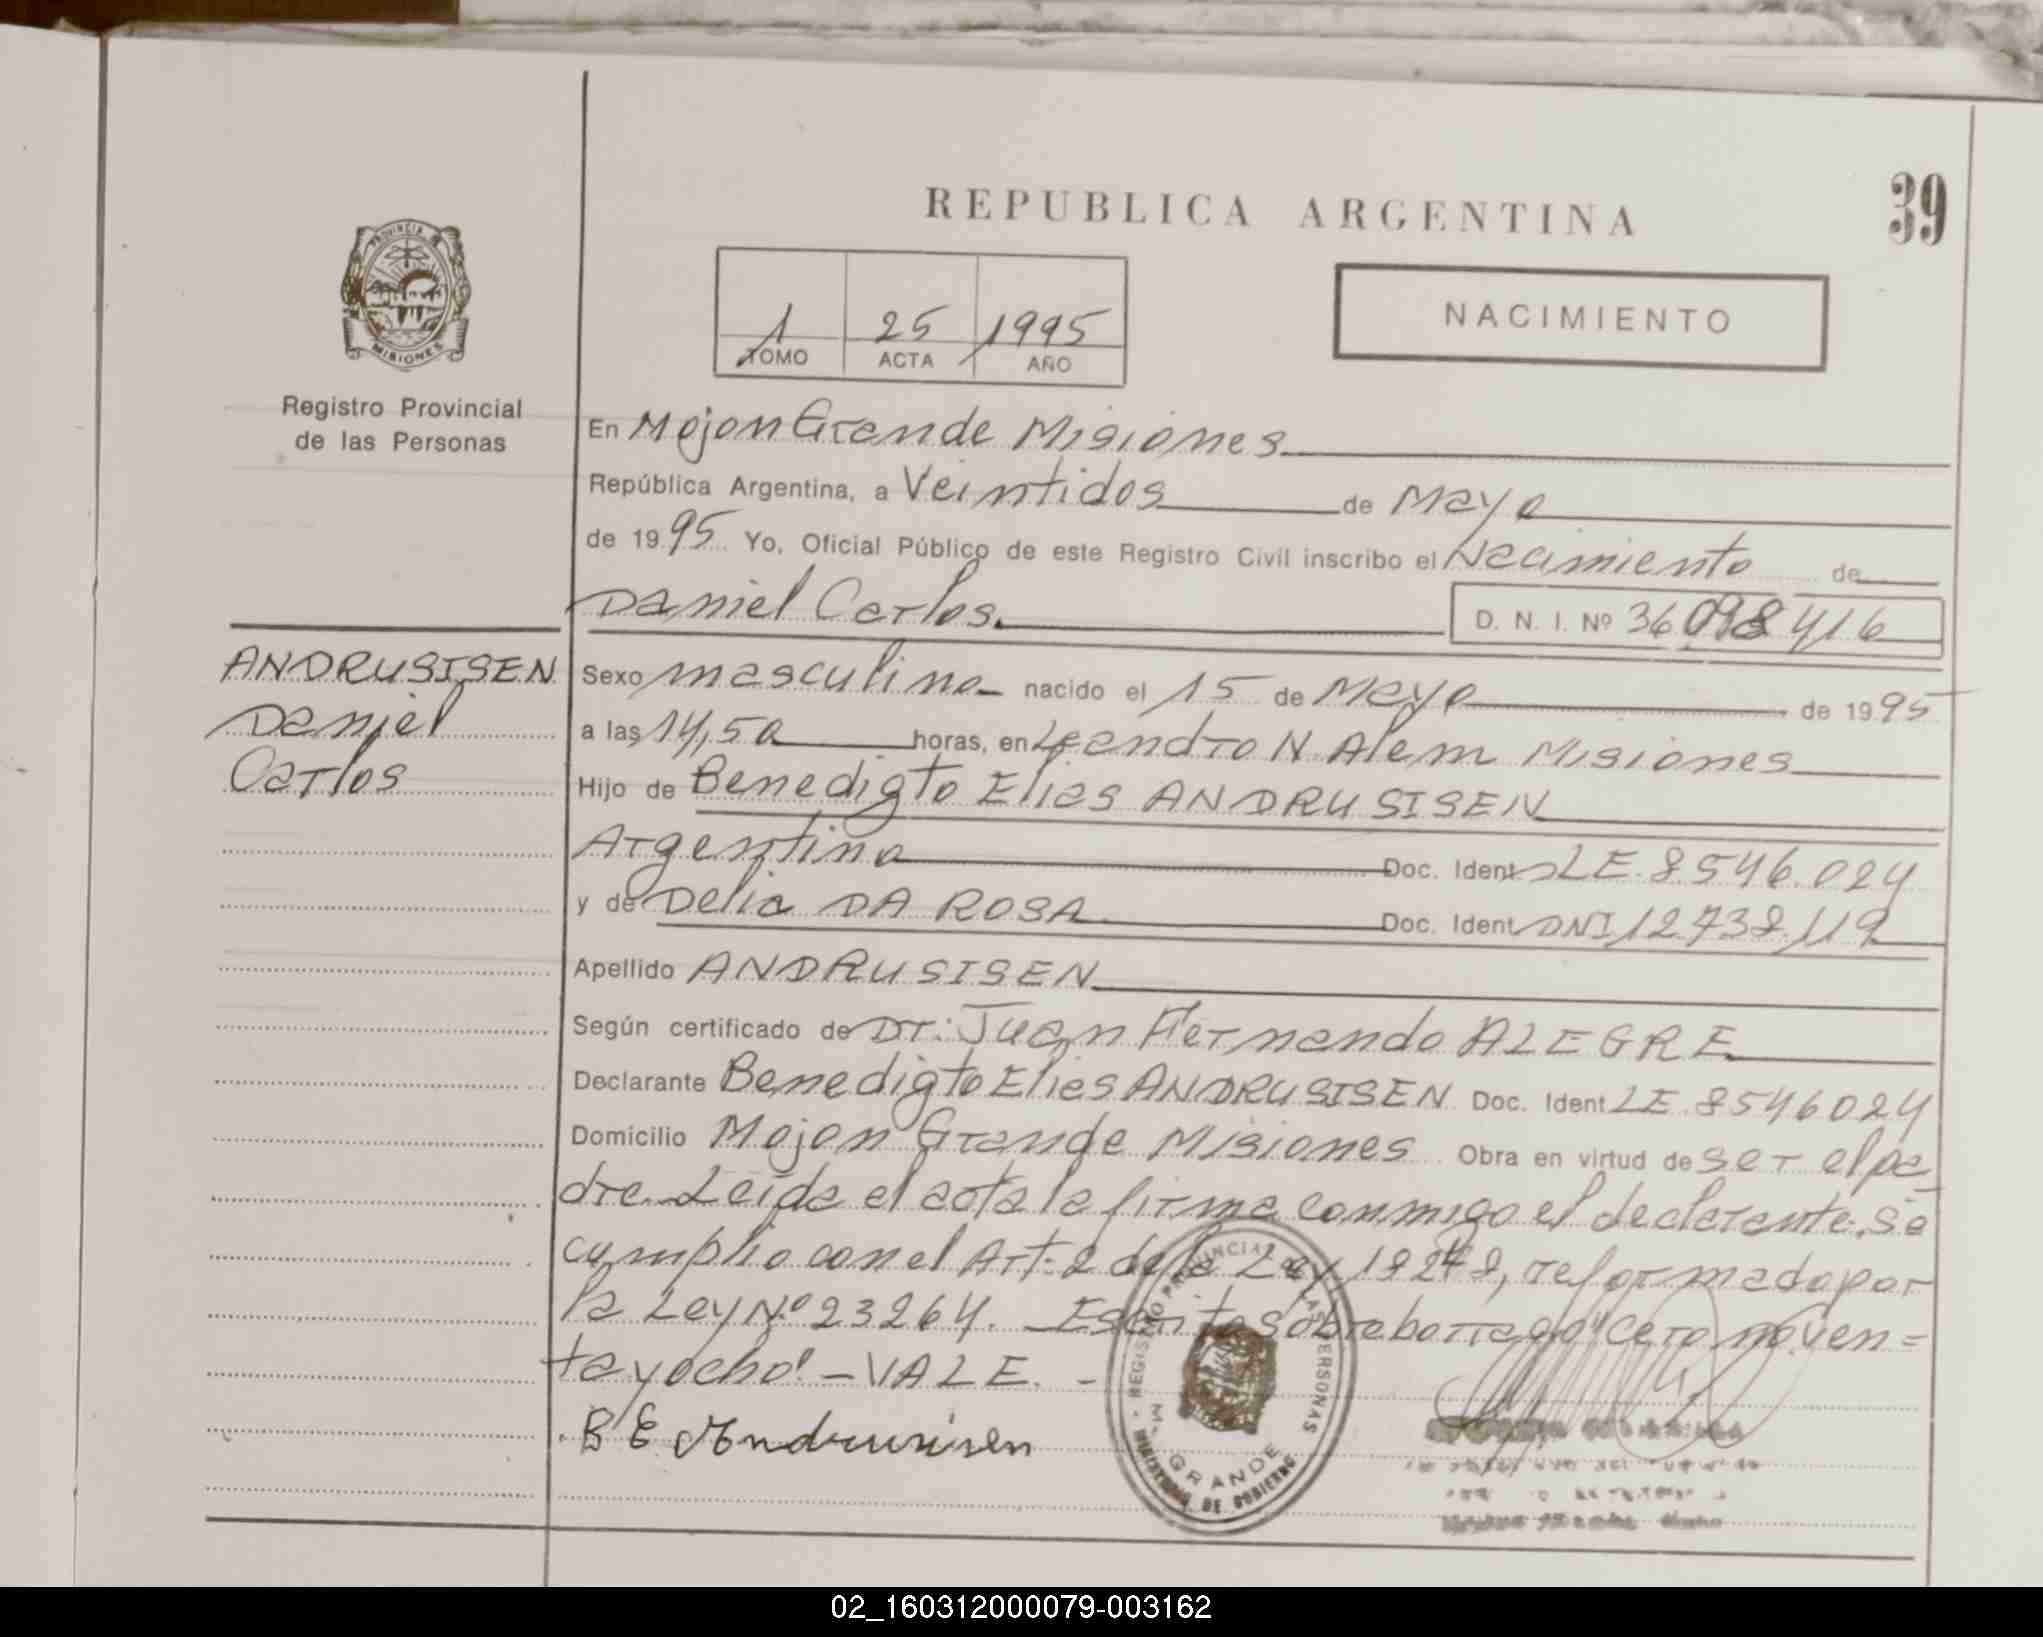 REPUBLICA ARGENTINA
39
PROVINCIA DE
MISIONES
1 25 1995
TOMO ACTA AÑO
NACIMIENTO
Registro Provincial
de las Personas
En Mojon Grande Misiones
República Argentina, a Veintidos de Mayo
de 19 95 Yo, Oficial Público de este Registro Civil inscribo el Nacimiento de
Daniel Carlos.
D. N. I. Nº 36098416
ANDRUSISEN
Daniel
Carlos
Sexo masculino nacido el 15 de Mayo de 19 95
a las 14,50 horas, en Leandro N Alem Misiones
Hijo de Benedigto Elias ANDRUSISEN
Argentino Doc. Ident LE. 8546.024
y de Delia DA ROSA Doc. Ident DNI 12.738.119
Apellido ANDRUSISEN
Según certificado de Dr: Juan Hernando ALEGRE
Declarante Benedigto Elias ANDRUSISEN Doc. Ident LE 8546024
Domicilio Mojon Grande Misiones Obra en virtud de ser el pa
dre. Leida el acta la firma conmigo el declarante, se
cumplio con el Art. 2 de la Ley 18248, reformado por
la Ley Nº 23264. Escrito sobreborrago "cero noven=
ta y ocho" - VALE. -
B E Andrusisen
REGISTRO PROVINCIAL DE LAS PERSONAS
M. GRANDE
MINISTERIO DE GOBIERNO
02_160312000079-003162